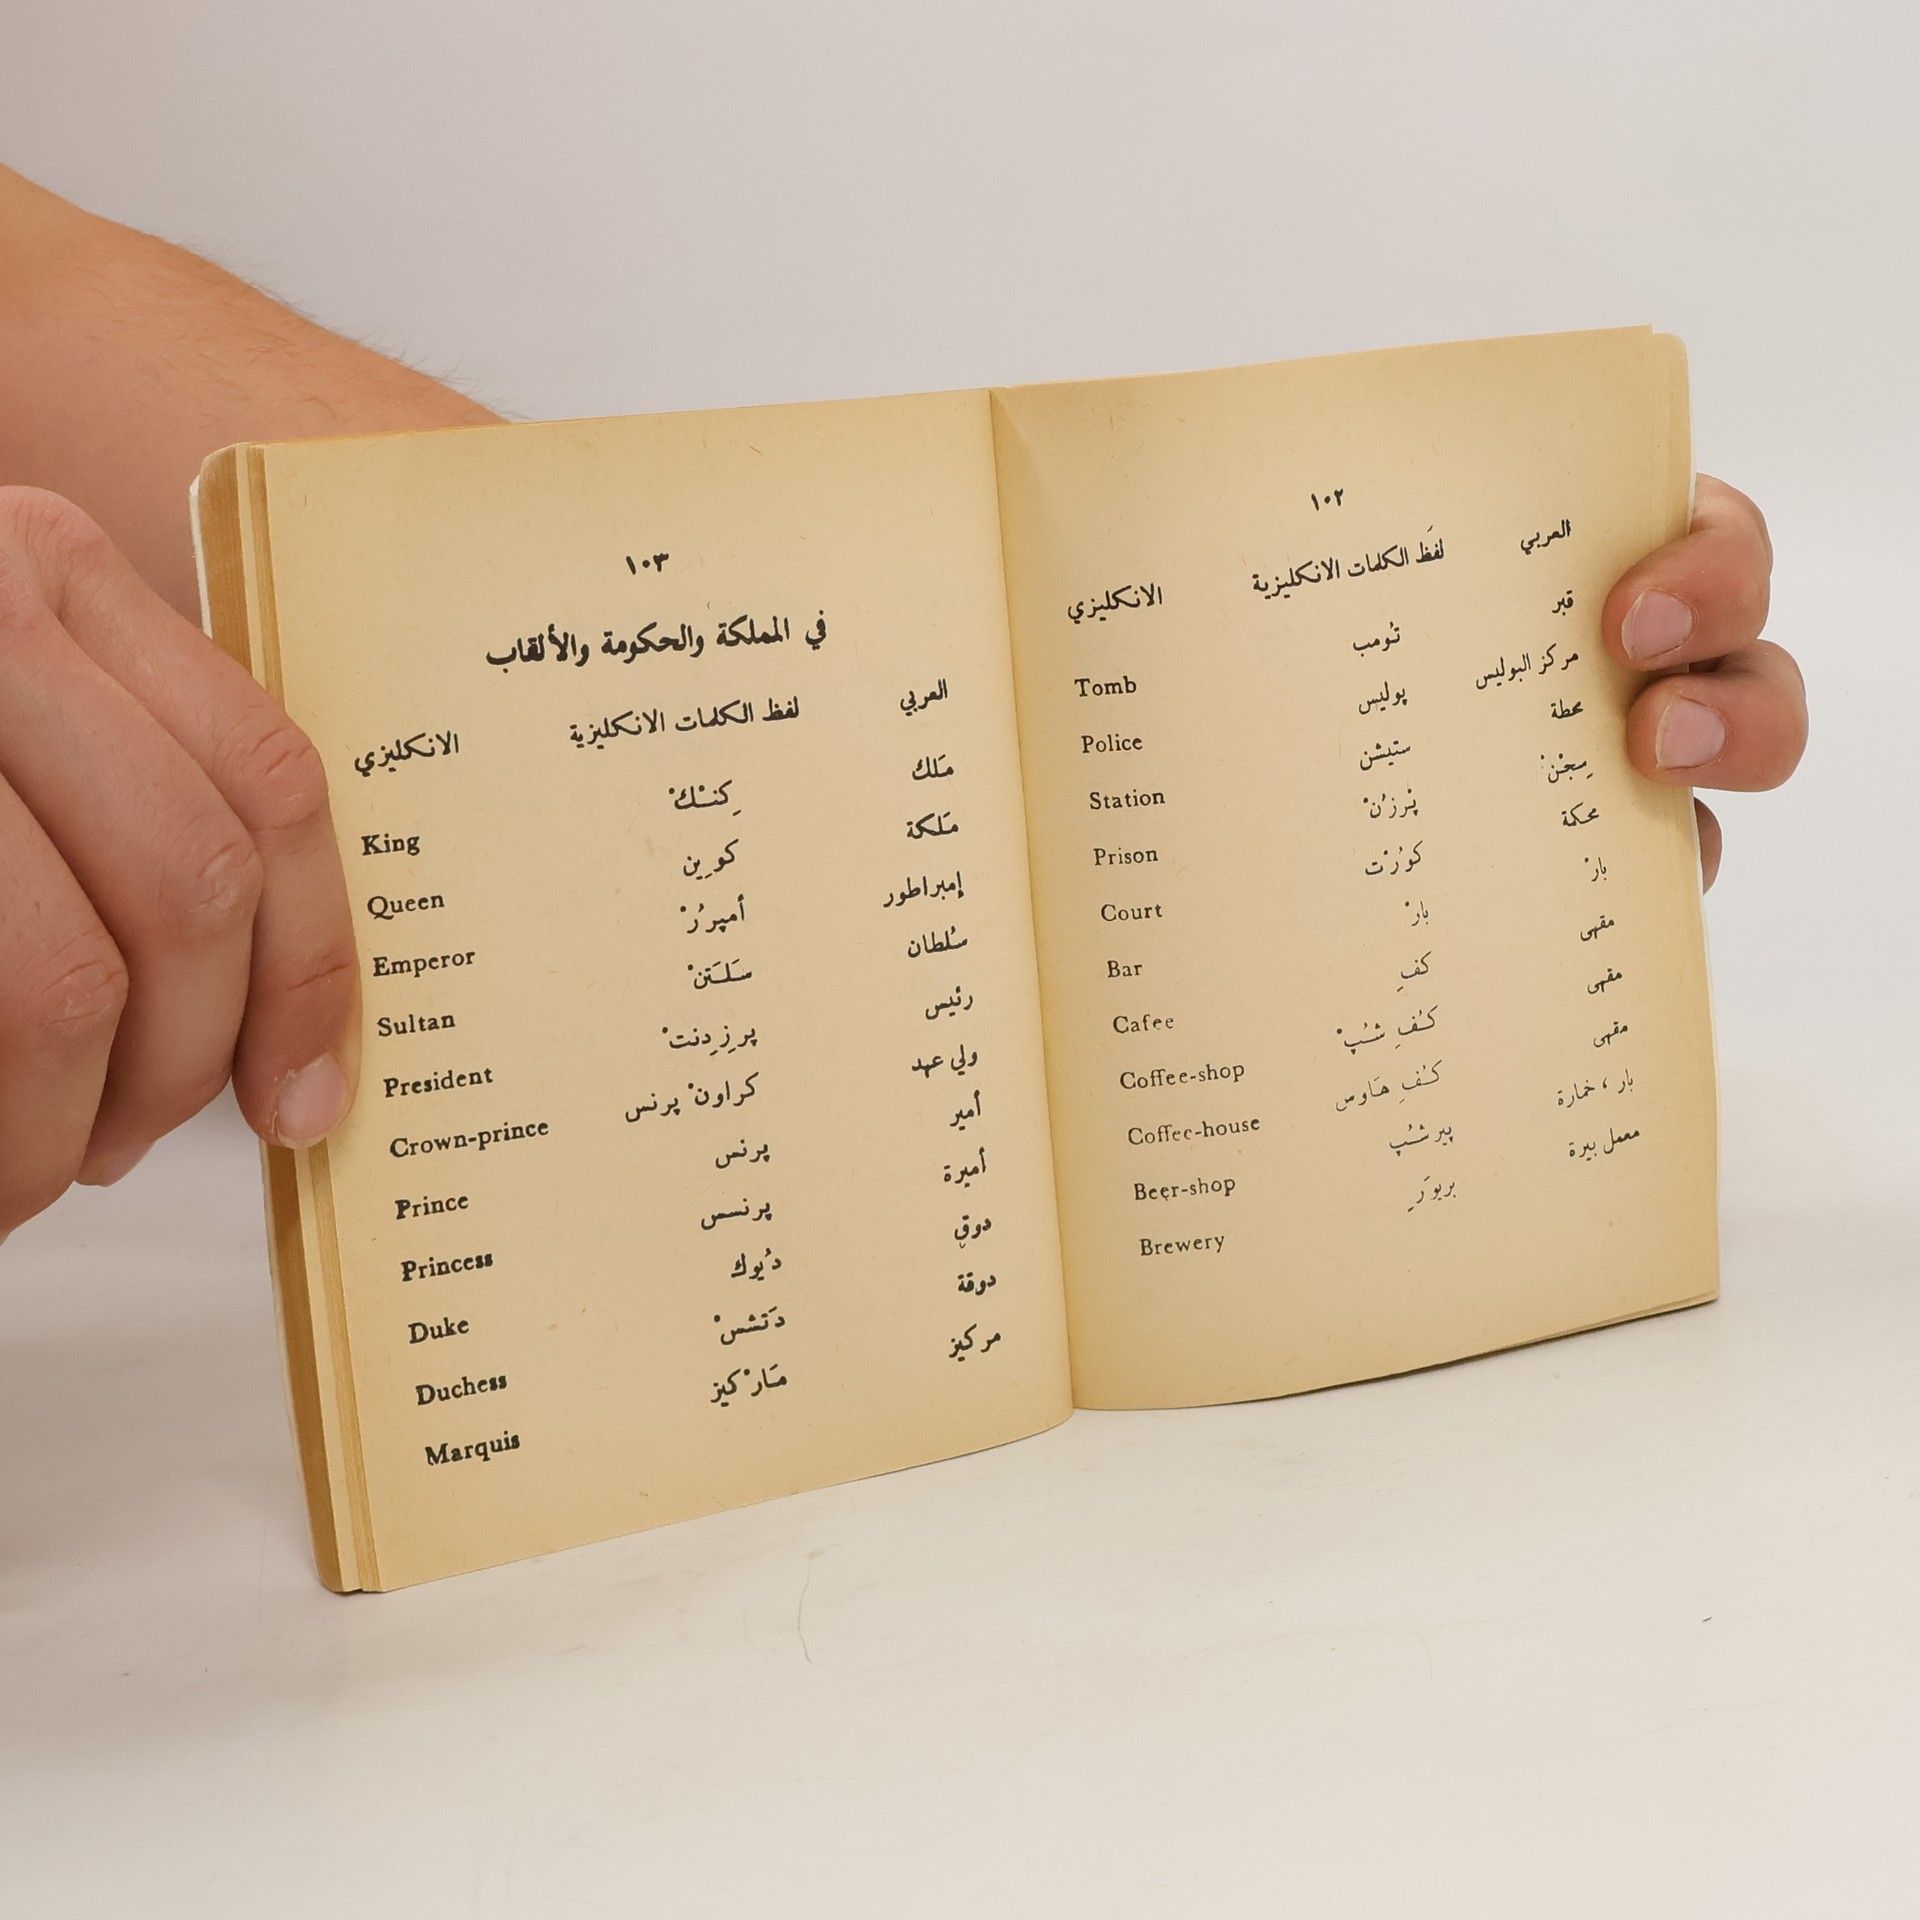 ١٠٢
العربي لفَظ الكلمات الانكليزية الانكليزي
قبر تُومب Tomb
مركز البوليس پوليس Police
محطة ستيشن Station
سِجْنْ پْرزُنْ Prison
محكمة كوُرْت Court
بارْ بارْ Bar
مقهى كفِ Cafee
مقهى كُفِ شُپْ Coffee-shop
مقهى كُفِ هَاوس Coffee-house
بار ، خمارة پير شُپ Beer-shop
معمل بيرة بريوَرِ Brewery
١٠٣
في المملكة والحكومة والألقاب
العربي لفظ الكلمات الانكليزية الانكليزي
مَلك كِنْكْ King
مَلكة كوِين Queen
إمبراطور أمپرُرْ Emperor
سُلطان سَلتَنْ Sultan
رئيس پرِزِدِنتْ President
ولي عهد كراونْ پرنس Crown-prince
أمير پرنس Prince
أميرة پرنسس Princess
دوق دُيوك Duke
دوقة دَتشسْ Duchess
مركيز مَارْكيز Marquis